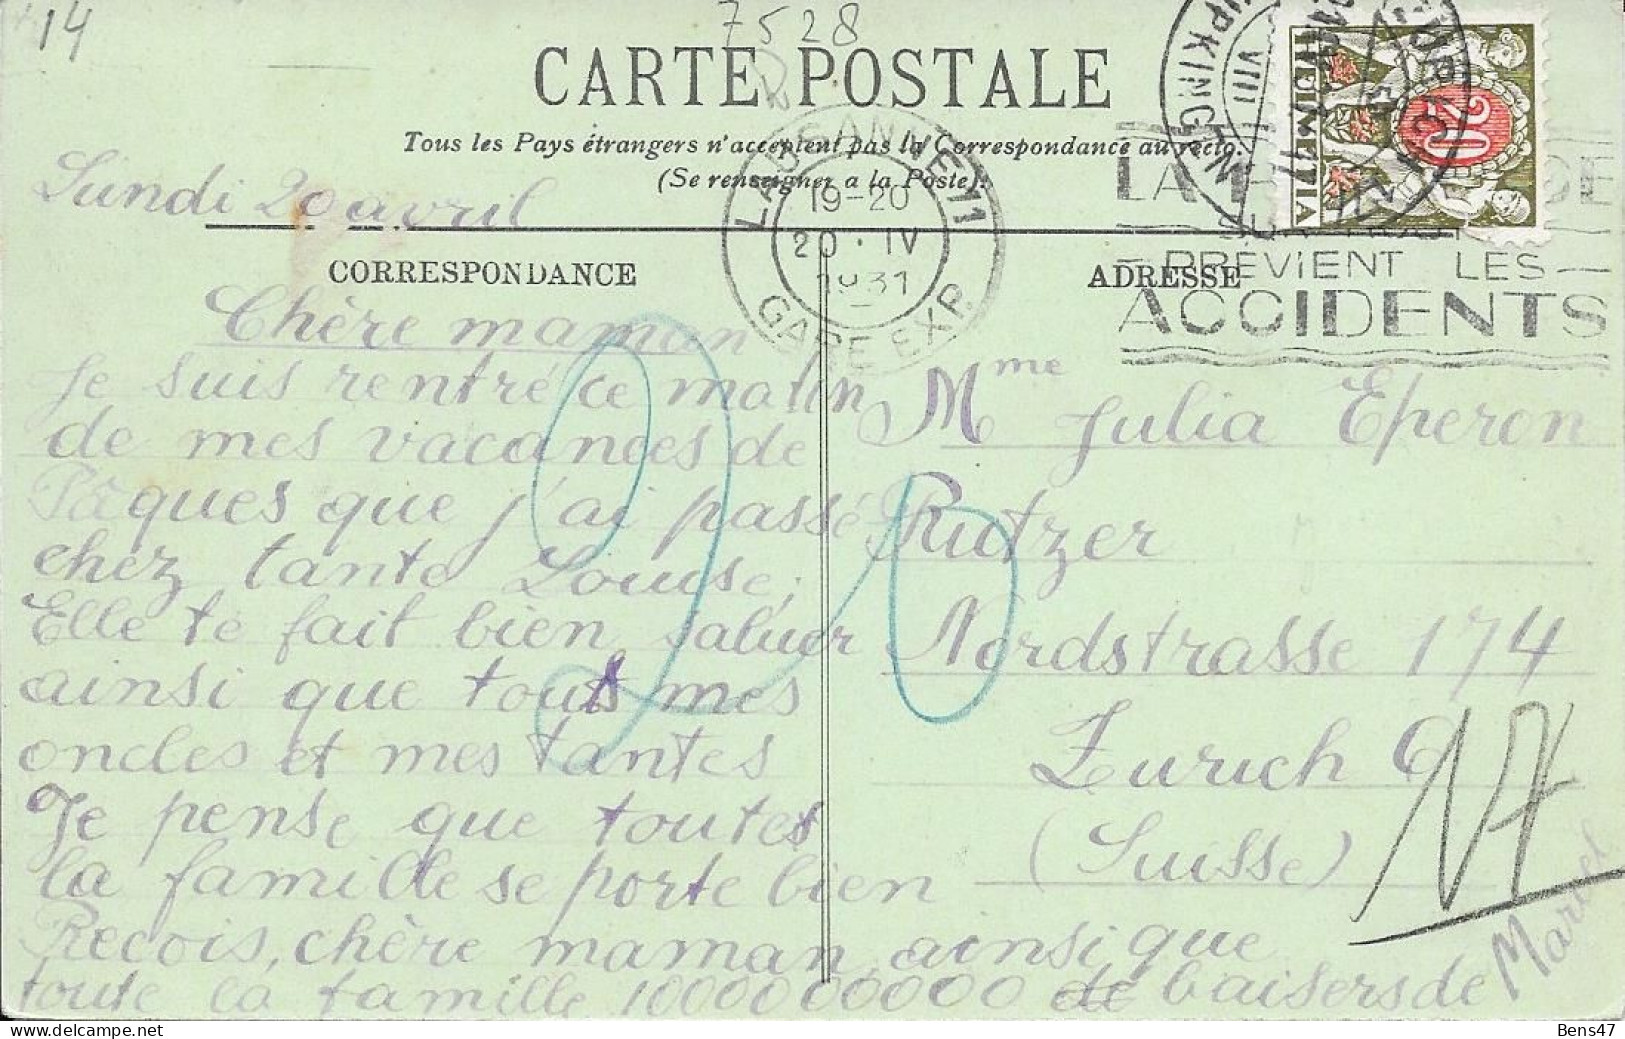 14
7528
CARTE POSTALE
Tous les Pays étrangers n'acceptent pas la Correspondance au recto.
(Se renseigner a la Poste).
LAUSANNE 1
19-20
20·IV
1931
GARE EXP.
LA
PRÉVIENT LES
ACCIDENTS
ZÜRICH
VIII
WIPKINGEN
20
HELVETIA
Lundi 20 avril
CORRESPONDANCE
ADRESSE
Chère maman
Je suis rentré ce matin
de mes vacances de
Pâques que j'ai passé
chez tante Louise;
Elle te fait bien saluer
ainsi que touts mes
oncles et mes tantes
Je pense que toutes
la famille se porte bien
Recois, chère maman, ainsi que
toute la famille 10000000000 de baisers de
Marcel
Mme Julia Eperon
Rutzer
Nordstrasse 174
Zurich 6
(Suisse)
20
17
Bens47